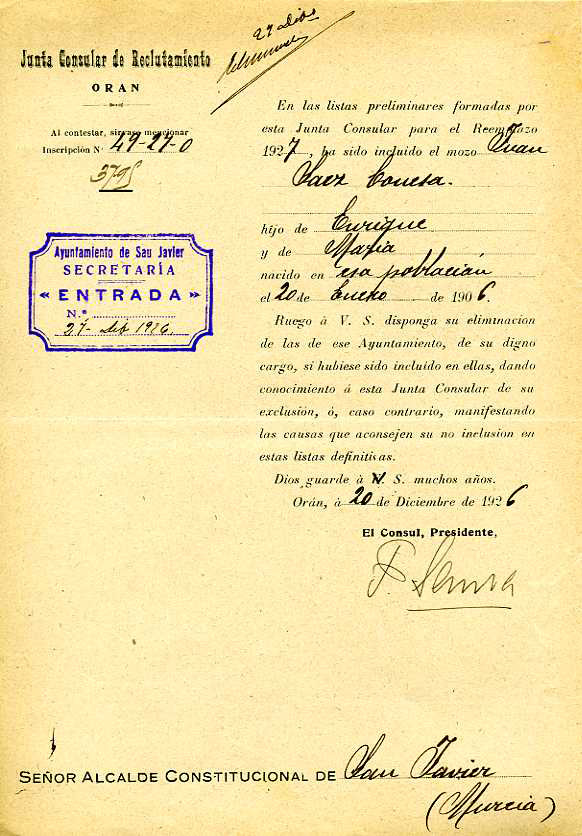 27 Dibe
Junta Consular de Reclutamiento
ORAN
Al contestar, sirvase mencionar
Inscripción N° 49-27-0
3795
Ayuntamiento de San Javier
SECRETARÍA
« ENTRADA »
N.°
27- Dib 1926.
En las listas preliminares formadas por
esta Junta Consular para el Reemplazo
1927, ha sido incluido el mozo Juan
Saez Conesa.
hijo de Enrique
y de Maria
nacido en esa poblacián
el 20 de Enero de 1906.
Ruego à V. S. disponga su eliminacion
de las de ese Ayuntamiento, de su digno
cargo, si hubiese sido incluido en ellas, dando
conocimiento á esta Junta Consular de su
exclusión, ó, caso contrario, manifestando
las causas que aconsejen su no inclusion en
estas listas definitisas.
Dios guarde à V. S. muchos años.
Orán, à 20 de Diciembre de 1926
El Consul, Presidente,
SEÑOR ALCALDE CONSTITUCIONAL DE San Javier
(Murcia)